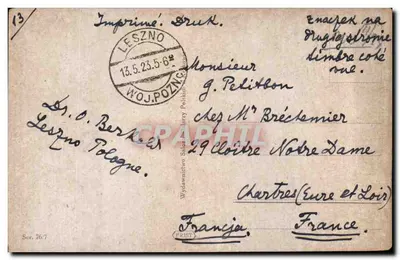 13)
Imprimé. Druk.
znaczek na
drugiej stronie
timbre coté
vue.
LESZNO
13.5.23.5-6
WOJ.POZN.
Monsieur
g. Petitbon
chez Mr Bréchemier
29 Cloître Notre Dame
Chartres (Eure et Loir)
Francja France.
Dr. O.
Leszno Pologne.
CPARAMA.COM